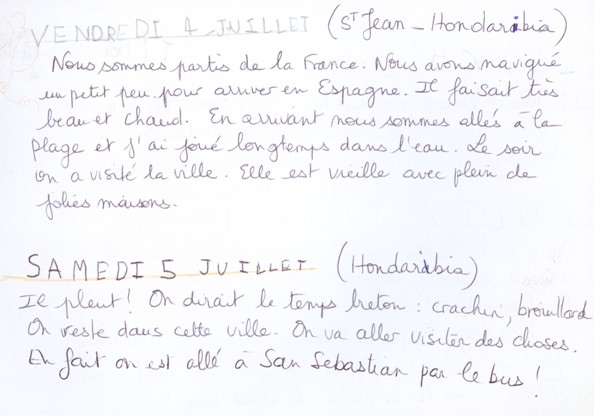 VENDREDI 4 JUILLET (ST Jean - Hondaribia)
Nous sommes partis de la France. Nous avons navigué
un petit peu pour arriver en Espagne. Il faisait très
beau et chaud. En arrivant nous sommes allés à la
plage et j'ai joué longtemps dans l'eau. Le soir
on a visité la ville. Elle est vieille avec plein de
jolies maisons.
SAMEDI 5 JUILLET (Hondaribia)
Il pleut! On dirait le temps breton : crachin, brouillard
On reste dans cette ville. On va aller visiter des choses.
En fait on est allé à San Sebastian par le bus!